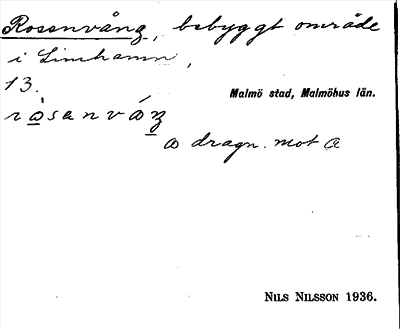 Rosenvång, bebyggt område
i Limhamn,
13.
Malmö stad, Malmöhus län.
ꝏ dragn. mot a
NILS NILSSON 1936.